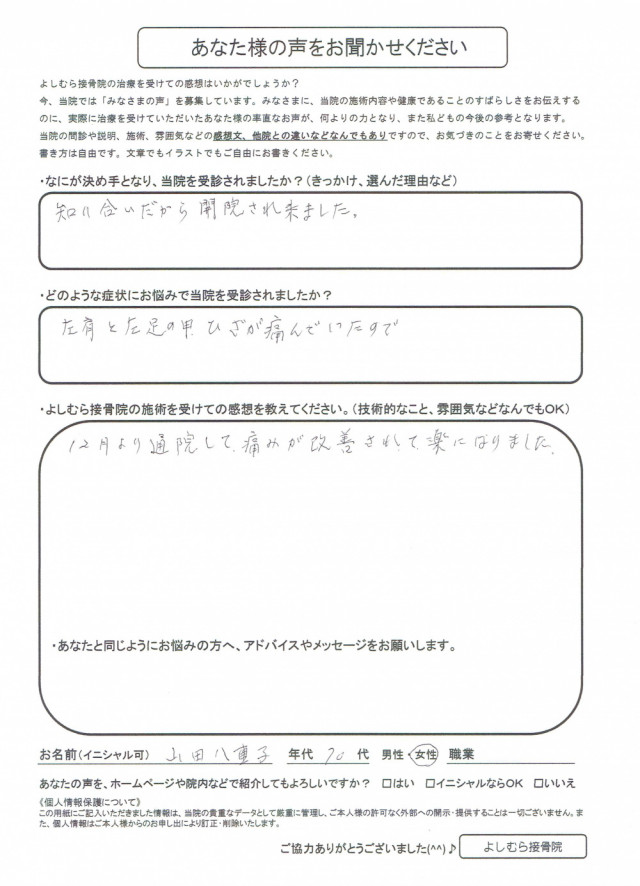 あなた様の声をお聞かせください
よしむら接骨院の治療を受けての感想はいかがでしょうか？
今、当院では「みなさまの声」を募集しています。みなさまに、当院の施術内容や健康であることのすばらしさをお伝えする
のに、実際に治療を受けていただいたあなた様の率直なお声が、何よりの力となり、また私どもの今後の参考となります。
当院の問診や説明、施術、雰囲気などの感想文、他院との違いなどなんでもありですので、お気づきのことをお寄せください。
書き方は自由です。文章でもイラストでもご自由にお書きください。
・なにが決め手となり、当院を受診されましたか？（きっかけ、選んだ理由など）
知り合いだから開院され来ました。
・どのような症状にお悩みで当院を受診されましたか？
左肩と左足の甲、ひざが痛んでいたので
・よしむら接骨院の施術を受けての感想を教えてください。（技術的なこと、雰囲気などなんでもOK）
12月より通院して、痛みが改善されて、楽になりました。
・あなたと同じようにお悩みの方へ、アドバイスやメッセージをお願いします。
お名前（イニシャル可） 山田八重子 年代 70 代 男性・女性 職業
あなたの声を、ホームページや院内などで紹介してもよろしいですか？ □はい □イニシャルならOK □いいえ
《個人情報保護について》
この用紙にご記入いただきました情報は、当院の貴重なデータとして厳重に管理し、ご本人様の許可なく外部への開示・提供することは一切ございません。ま
た、個人情報はご本人様からのお申し出により訂正・削除いたします。
ご協力ありがとうございました(^^)♪ よしむら接骨院